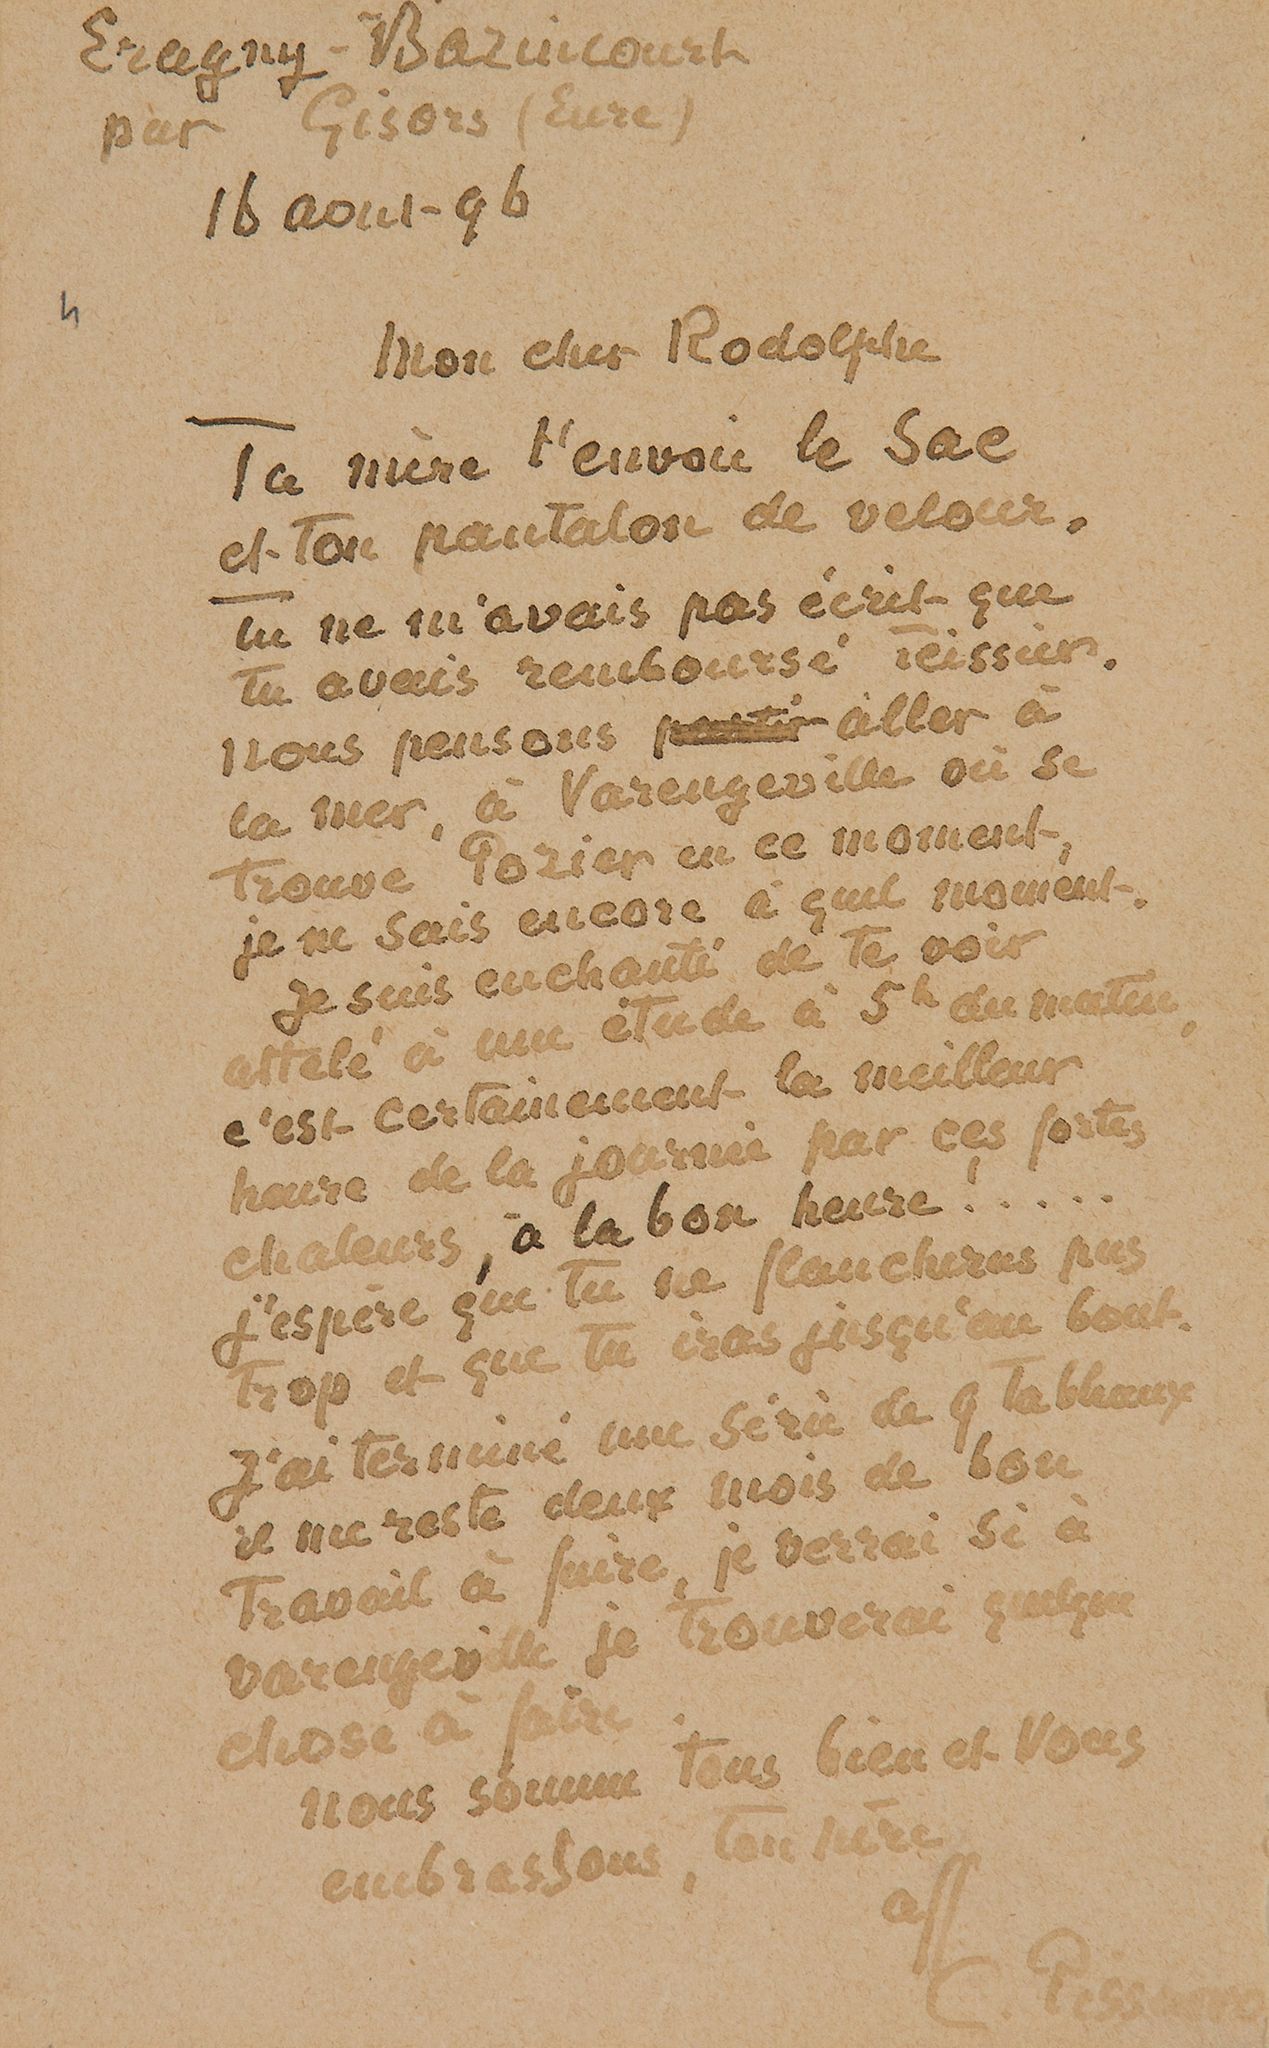 Eragny-Bazincourt
par Gisors (Eure)
16 aout-96
4
Mon cher Rodolphe
Ta mère t'envoie le Sac
et ton pantalon de velour.
Tu ne m'avais pas écrit que
tu avais remboursé Teissier.
nous pensons partir aller à
la mer, à Varengeville où se
trouve Pozier en ce moment,
je ne sais encore à quel moment.
Je suis enchanté de te voir
attelé à une étude à 5h du matin,
c'est certainement la meilleur
heure de la journée par ces fortes
chaleurs, à la bon heure!.....
j'espère que tu ne flancheras pas
trop et que tu iras jusqu'au bout.
J'ai terminé une série de 9 tableaux
il me reste deux mois de bon
travail à faire, je verrai si à
varengeville je trouverai quelque
chose à faire.
nous somme tous bien et vous
embrassons, ton père
aff
C. Pissarro